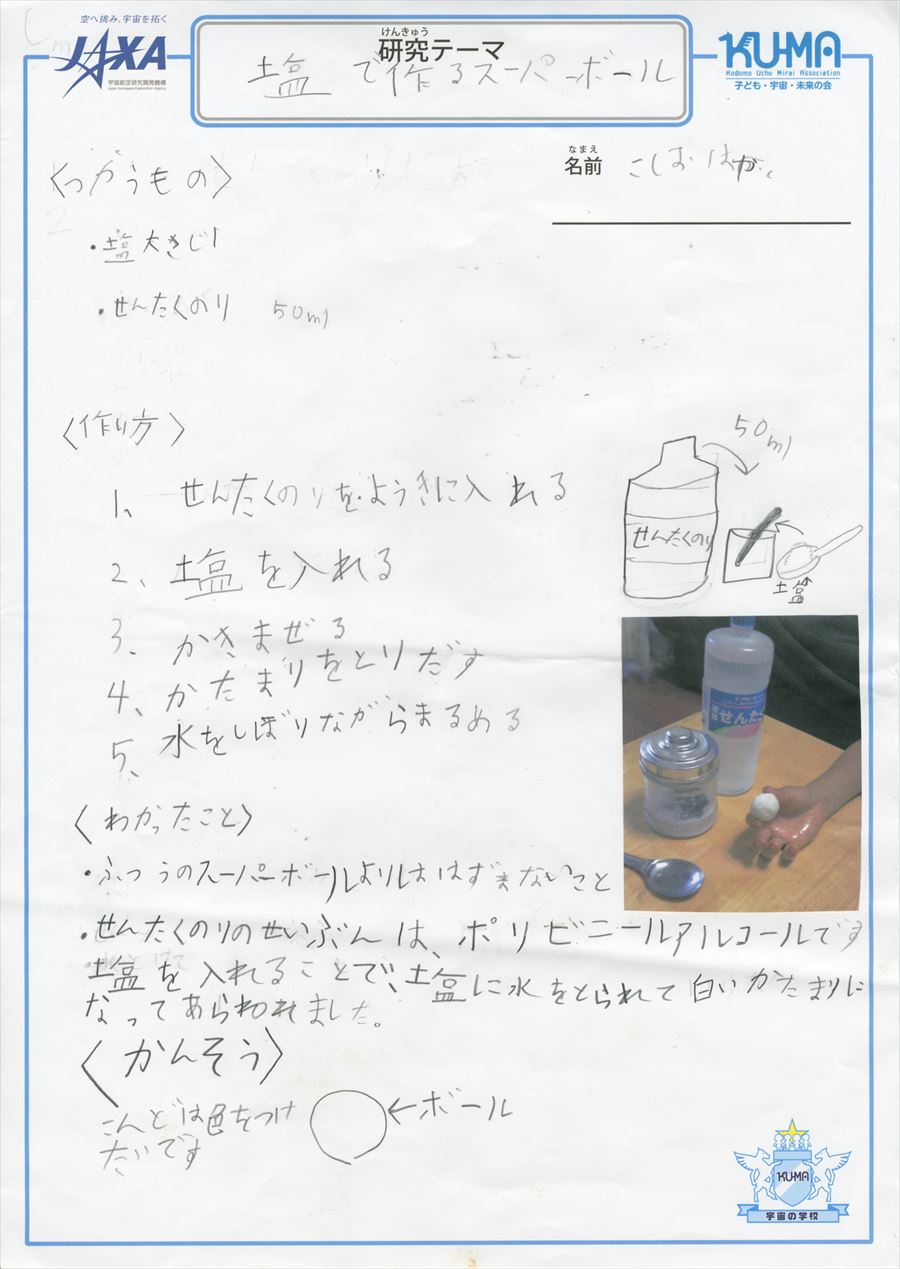 空へ挑み、宇宙を拓く
JAXA
宇宙航空研究開発機構
Japan Aerospace Exploration Agency
けんきゅう
研究テーマ
塩で作るスーパーボール
KU-MA
Kodomo Uchu Mirai Association
子ども・宇宙・未来の会
なまえ
名前 こしお はな
〈つかうもの〉
・塩大きじ1
・せんたくのり 50ml
〈作り方〉
1、せんたくのりをようきに入れる
2、塩を入れる
3、かきまぜる
4、かたまりをとりだす
5、水をしぼりながらまるめる
50ml
せんたくのり
塩
せんた
〈わかったこと〉
・ふつうのスーパーボールよりははずまないこと
・せんたくのりのせいぶんは、ポリビニールアルコールです
塩を入れることで、塩に水をとられて白いかたまりに
なってあらわれました。
〈かんそう〉
こんどは色をつけ
たいです
←ボール
KU-MA
宇宙の学校